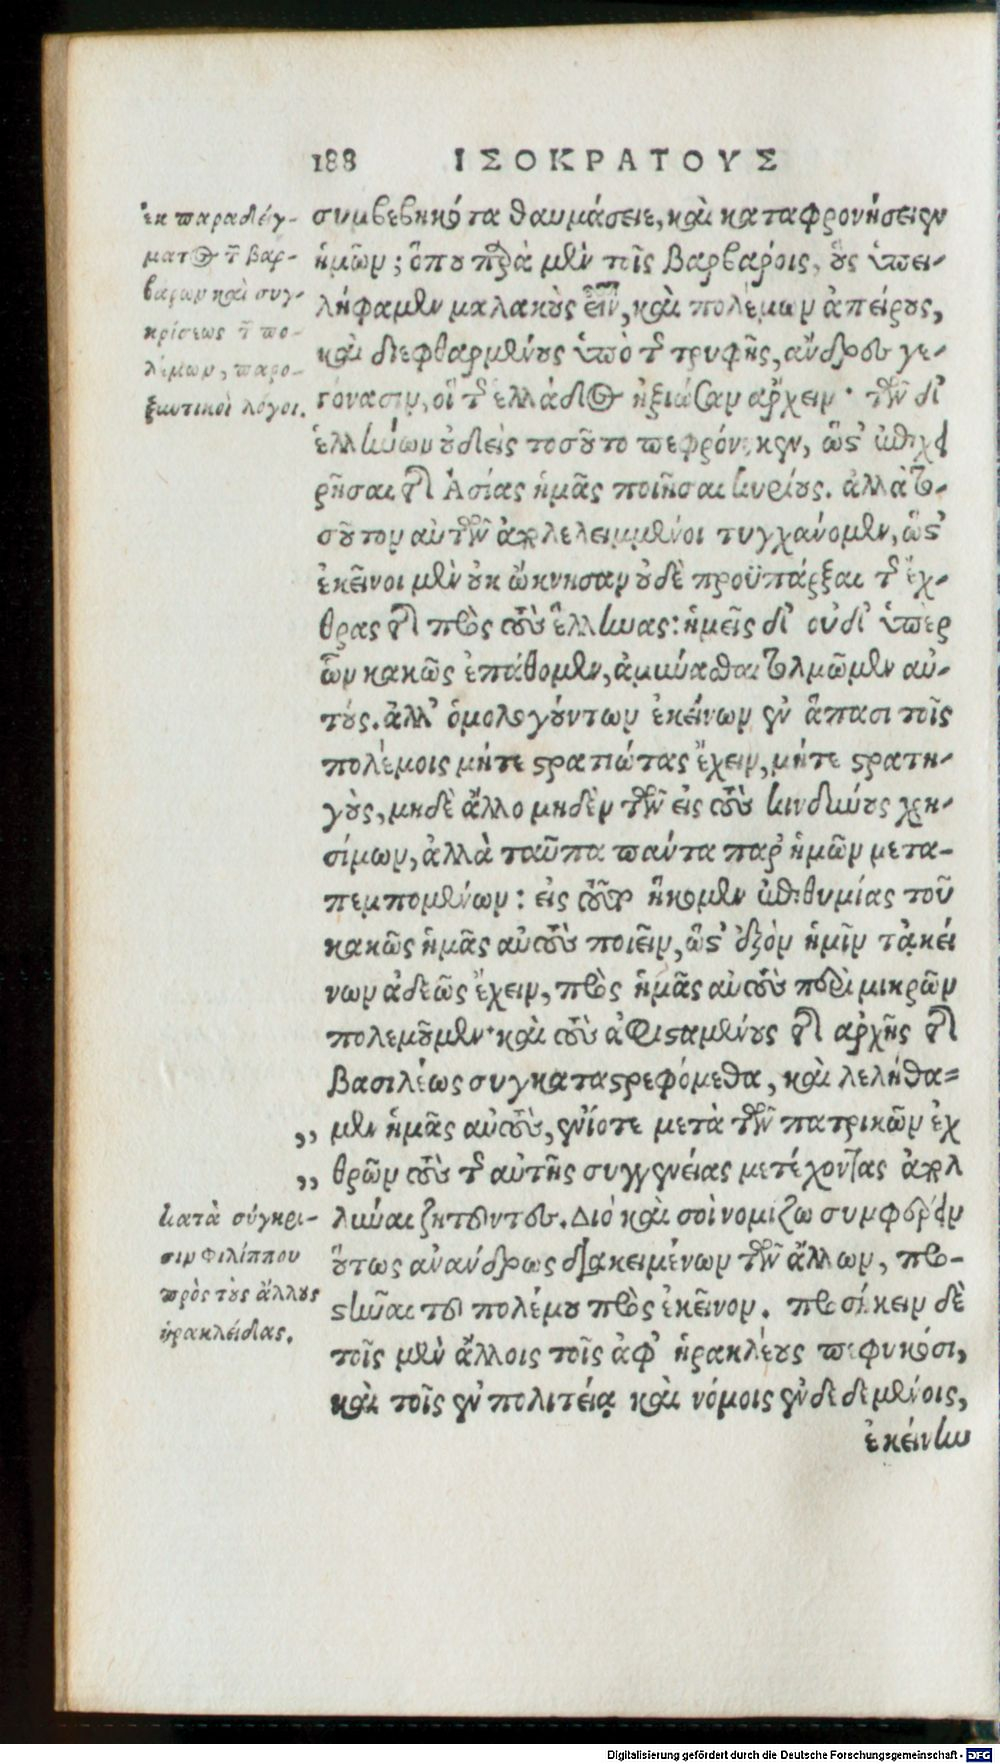 188 ΙΣΟΚΡΑΤΟΥΣ
ἐκ παραδείγ-
ματος τῶν βαρ-
βάρων καὶ συγ-
κρίσεως τῶν πο-
λέμων, παρο-
ξυντικοὶ λόγοι.
συμβεβηκότα θαυμάσειε, καὶ καταφρονήσειεν
ἡμῶν; ὅπου παρὰ μὲν τοῖς βαρβάροις, οὓς ὑπει-
λήφαμεν μαλακοὺς εἶναι, καὶ πολέμων ἀπείρους,
καὶ διεφθαρμένους ὑπὸ τῆς τρυφῆς, ἄνδρες γε-
γόνασιν, οἳ τῆς ἑλλάδος ἠξίωσαν ἄρχειν· τῶν δ'
ἑλλήνων οὐδεὶς τοσοῦτο πεφρόνηκεν, ὥστ' ἐπιχει
ρῆσαι τῆς Ἀσίας ἡμᾶς ποιῆσαι κυρίους. ἀλλὰ το-
σοῦτον αὐτῶν ἀπολελειμμένοι τυγχάνομεν, ὥστ'
ἐκεῖνοι μὲν οὐκ ὤκνησαν οὐδὲ προϋπάρξαι τῆς ἔχ-
θρας τῆς πρὸς τοὺς ἕλληνας: ἡμεῖς δ' οὐδ' ὑπὲρ
ὧν κακῶς ἐπάθομεν, ἀμύνασθαι τολμῶμεν αὐ-
τούς. ἀλλ' ὁμολογούντων ἐκείνων ἐν ἅπασι τοῖς
πολέμοις μήτε στρατιώτας ἔχειν, μήτε στρατη-
γοὺς, μηδὲ ἄλλο μηδὲν τῶν εἰς τοὺς κινδύνους χρη-
σίμων, ἀλλὰ ταῦτα πάντα παρ' ἡμῶν μετα-
πεμπομένων: εἰς τοῦθ' ἥκομεν ἐπιθυμίας τοῦ
κακῶς ἡμᾶς αὐτοὺς ποιεῖν, ὥστ' ἐξὸν ἡμῖν τἀκεί
νων ἀδεῶς ἔχειν, πρὸς ἡμᾶς αὐτοὺς περὶ μικρῶν
πολεμοῦμεν· καὶ τοὺς ἀφισταμένους τῆς ἀρχῆς τῆς
βασιλέως συγκαταστρεφόμεθα, καὶ λελήθα=
„ μεν ἡμᾶς αὐτοὺς, ἐνίοτε μετὰ τῶν πατρικῶν ἐχ
„ θρῶν τοὺς τῆς αὐτῆς συγγενείας μετέχοντας ἀπολ
κατὰ σύγκρι-
σιν φιλίππου
πρὸς τοὺς ἄλλους
ἡρακλείδας.
λύναι ζητοῦντες. Διὸ καὶ σοὶ νομίζω συμφέρειν
οὕτως ἀνάνδρως διακειμένων τῶν ἄλλων, προ-
στῆναι τοῦ πολέμου πρὸς ἐκεῖνον. προσήκειν δὲ
τοῖς μὲν ἄλλοις τοῖς ἀφ' ἡρακλέους πεφυκόσι,
καὶ τοῖς ἐν πολιτείᾳ καὶ νόμοις ἐνδεδεμένοις,
ἐκείνην
Digitalisierung gefördert durch die Deutsche Forschungsgemeinschaft - DFG